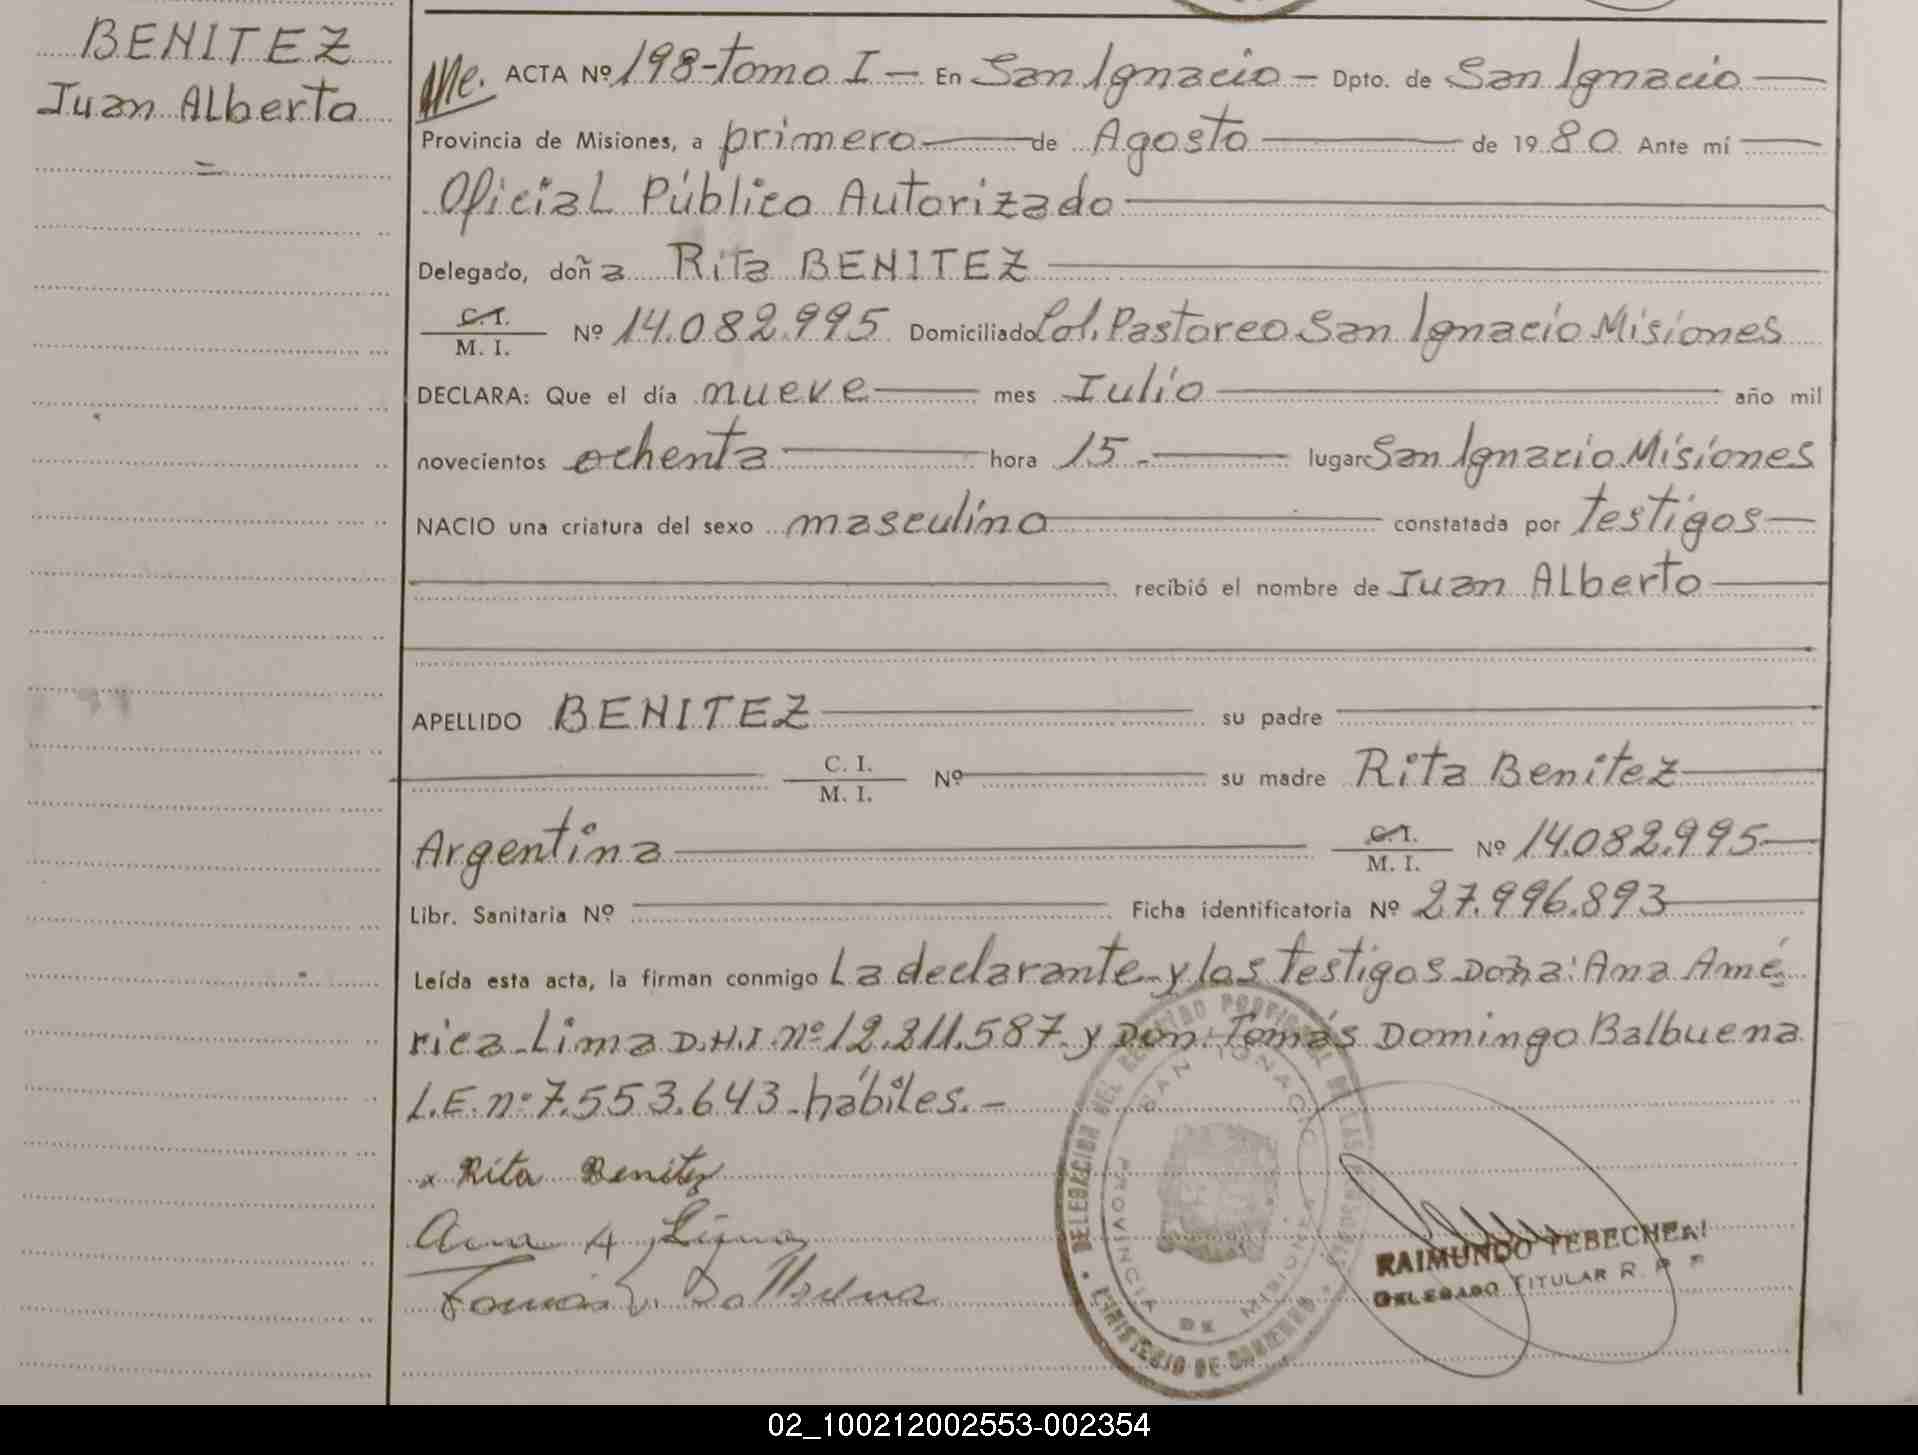 BENITEZ
Juan Alberto
=
ACTA Nº 198-tomo I - En San Ignacio - Dpto. de San Ignacio
Provincia de Misiones, a primero de Agosto de 1980 Ante mí
Oficial Público Autorizado
Delegado, doña Rita BENITEZ
C.I.
M. I. Nº 14.082.995 Domiciliado Col. Pastoreo San Ignacio Misiones
DECLARA: Que el día nueve mes Julio año mil
novecientos ochenta hora 15 - lugar San Ignacio Misiones
NACIO una criatura del sexo masculino constatada por testigos
recibió el nombre de Juan Alberto
APELLIDO BENITEZ su padre
C. I.
M. I. Nº su madre Rita Benitez
Argentina C.I.
M. I. Nº 14.082.995
Libr. Sanitaria Nº Ficha identificatoria Nº 27.996.893
Leída esta acta, la firman conmigo La declarante y los testigos Doña: Ana Amé
rica Lima D.N.I. nº 12.211.587 y Don: Tomás Domingo Balbuena
L.E. nº 7.553.643 hábiles. -
x Rita Benitez
Ana A Lima
Tomás D. Balbuena
DELEGACION DEL REGISTRO PROVINCIAL DE LAS PERSONAS
MINISTERIO DE GOBIERNO
SAN IGNACIO
PROVINCIA DE MISIONES
RAIMUNDO TEBECHERI
DELEGADO TITULAR R. P. P.
02_100212002553-002354